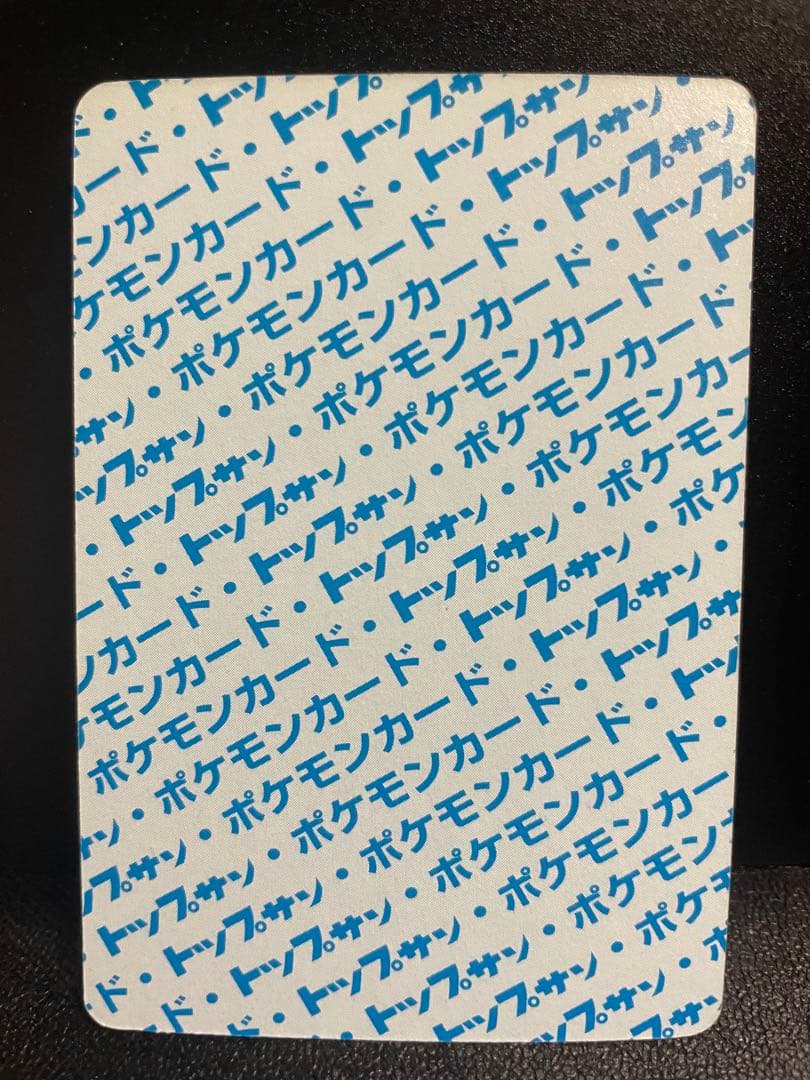 ド・ト
カード・トッ
ンカード・トップ
ケモンカード・トップサ
・ポケモンカード・トップサン
サン・ポケモンカード・トップサン
ップサン・ポケモンカード・トップサン
・トップサン・ポケモンカード・トップ
ード・トップサン・ポケモンカード・ト
ンカード・トップサン・ポケモンカード
モンカード・トップサン・ポケモンカ
ポケモンカード・トップサン・ポケモン
・ポケモンカード・トップサン・ポケ
サン・ポケモンカード・トップサン・
トップサン・ポケモンカード・トップサ
トップサン・ポケモンカード・トッ
ド・トップサン・ポケモンカード・
トップサン・ポケモンカー
トップサン・ポケモン
トップサン・ポケ
プサン・ポ